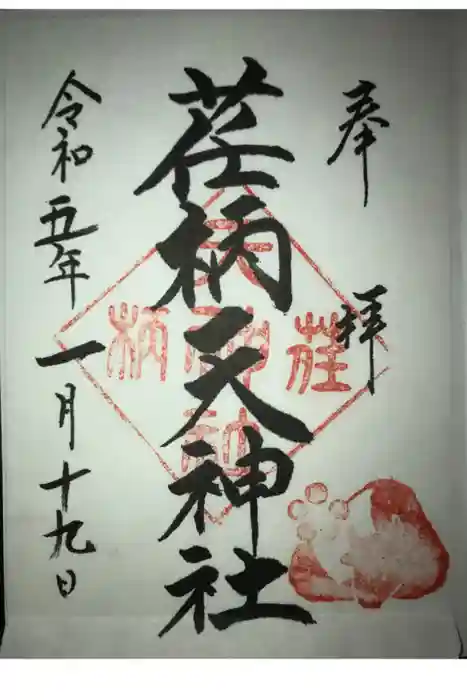 奉拝
荏柄天神社
令和五年一月十九日
荏
柄
天
神
社